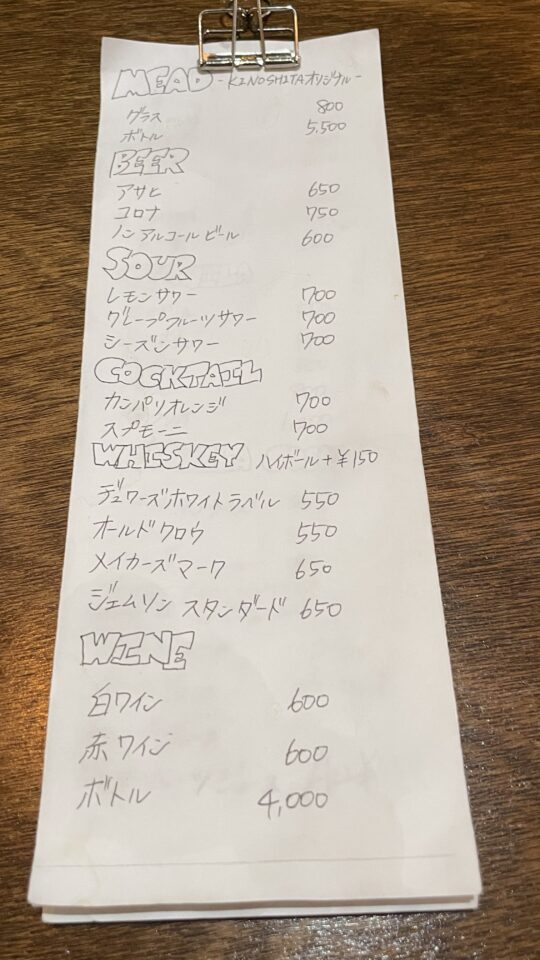 MEAD -KINOSHITAオリジナル-
グラス 800
ボトル 5,500
BEER
アサヒ 650
コロナ 750
ノンアルコールビール 600
SOUR
レモンサワー 700
グレープフルーツサワー 700
シーズンサワー 700
COCKTAIL
カンパリオレンジ 700
スプモーニ 700
WHISKEY ハイボール+¥150
デュワーズホワイトラベル 550
オールドクロウ 550
メイカーズマーク 650
ジェムソン スタンダード 650
WINE
白ワイン 600
赤ワイン 600
ボトル 4,000